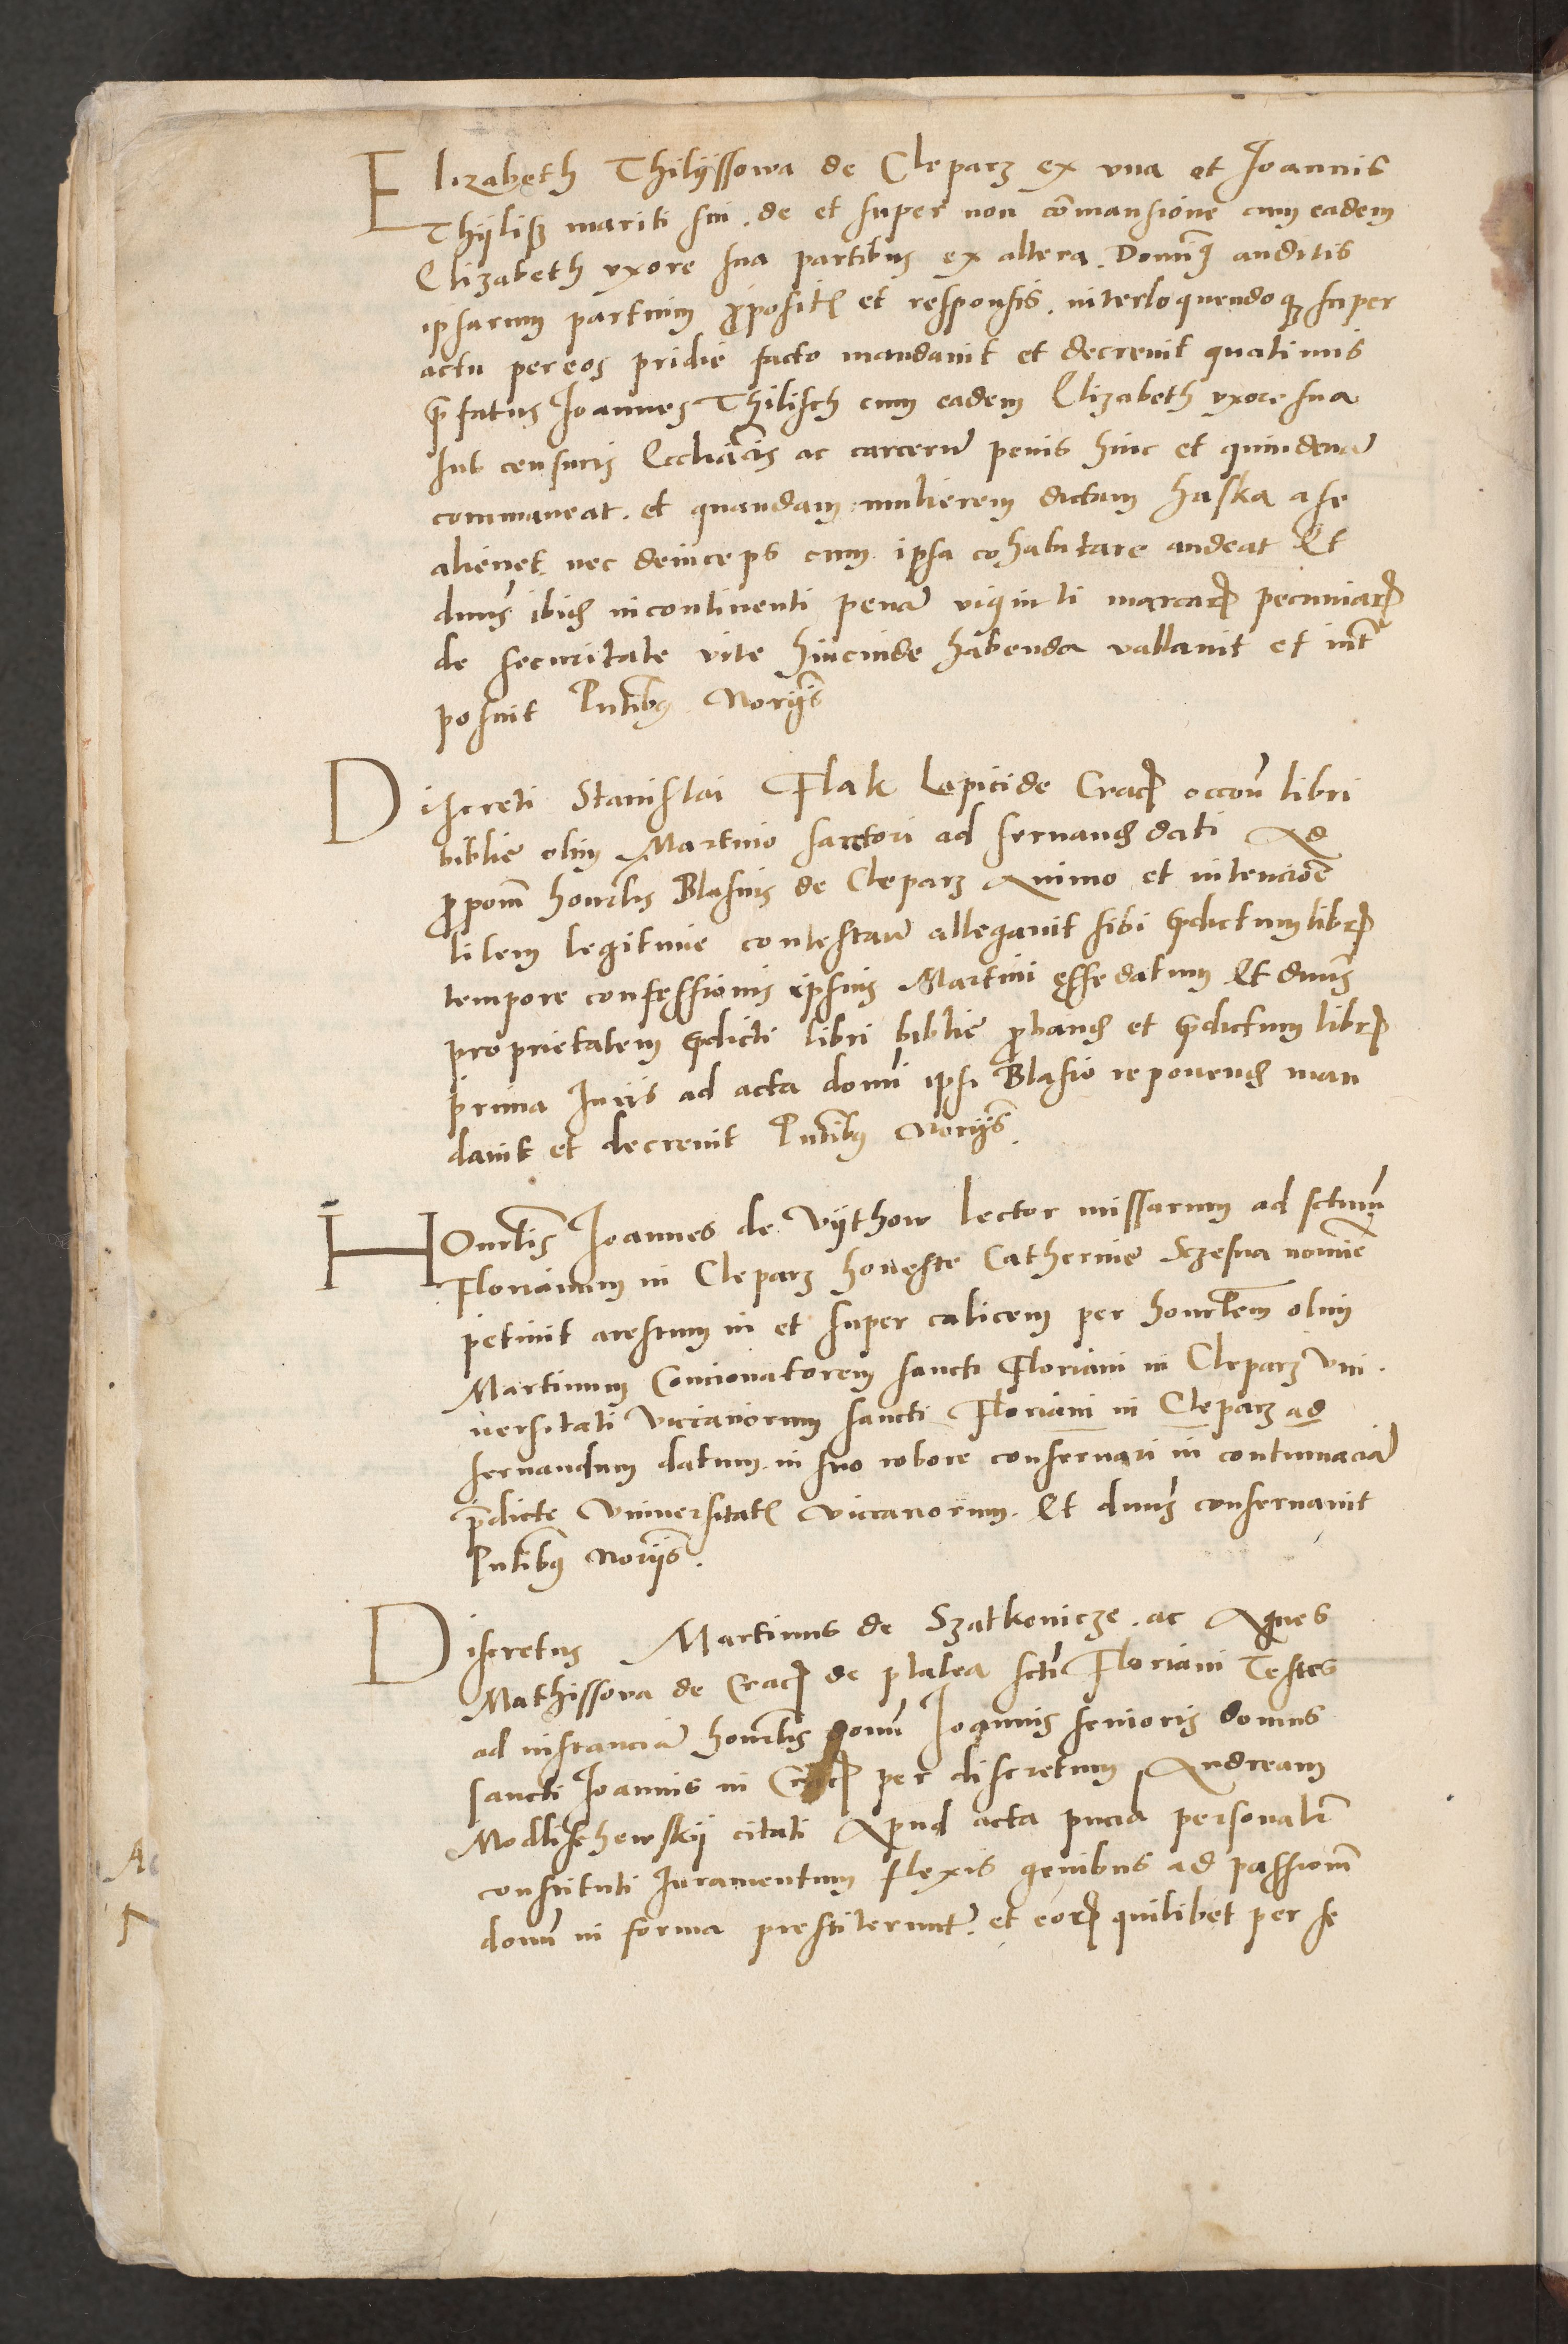 Elizabeth Thilijssowa de Cleparz ex vna et Joannis
Thijlisz mariti sui . de et super non cōmansione cum eadem
Elizabeth vxore sua partibus ex altera . Dominꝰ auditis
ipsarum partium ꝓpositꝭ et responsis . interloquendoqꝫ super
actu per eos pridie facto mandauit et decreuit quatinus
p̄fatus Joannes Thilisch cum eadem Elizabeth vxore sua
sub censuris Eccliāˢᵗⁱᶜⁱˢ ac carcerū penis hinc et quindenā
commaneat . et quandam mulierem dictam haska a se
alienet nec deinceps cum ipsa cohabitare audeat Et
dnūs ibidꝫ incontinenti penā viginti marcaꝝ pecuniaꝝ
de securitate vite hincinde habenda vallauit et int̄
posuit Pn̄tibus Norijs
Discreti Stanislai Flak lapicide Cracꝭ occoū libri
biblie olim Martino sartori ad seruandꝫ dati Ad
ꝓpoˢⁱᵗⁱᵒm̄ honˡⁱˢ Blasius de Cleparz Animo et intencioē
litem legitime contestanꝭ allegauit sibi p̄dictum libꝝ
tempore confessionis ipsius Martini esse datum Et dnūs
proprietatem p̄dicti libri biblie ꝓbandꝫ et p̄dictum libꝝ
prima Juris ad acta domī ipsi Blasio reponendꝫ man
dauit et decreuit Pn̄tibus Norijs .
Honˡⁱˢ Joannes de Vijthow lector missarum ad sctum̄
Florianum in Cleparz honeste Catherine Sczesna nomiē
petiuit arestum in et super calicem per honˡem olim
Martinum Concionatorem sancti Floriani in Cleparz Vni .
uersitati Vicariorum sancti Floriani in Cleparz ad
seruandum datum in suo robore conseruari in contumaciā
p̄dicte Vniuersitatꝭ viccariorum . Et dnūs conseruauit
Pn̄tibus Norijs .
Discretus Martinus de Szatkouicze . ac Agnes
Mathissova de Cracꝭ de platea scti Floriani Testes
ad instanciā honˡⁱˢ domī Joannis senioris domus
sancti Joannis in Cracꝭ per discretum Andream
Modlischewskij citati Apud acta pn̄cia personalr̄
constituti Juramentum flexis genibus ad passionem
domī in forma prestiterunt . et eoꝝ quilibet per se